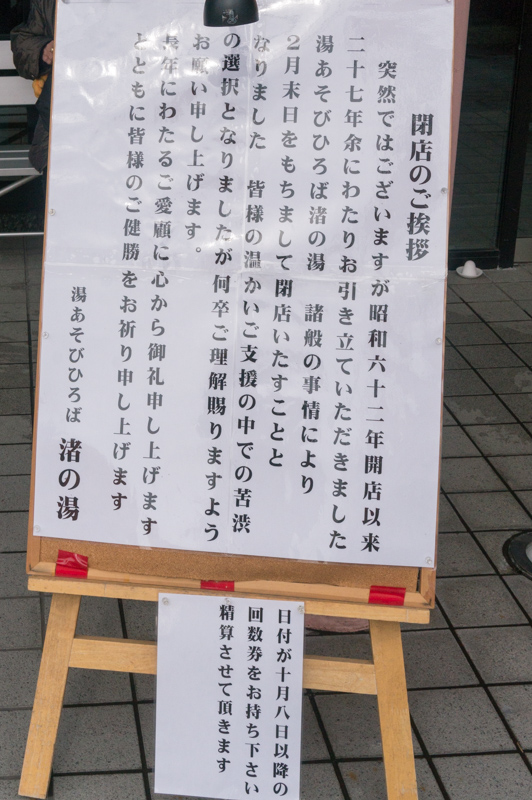 閉店のご挨拶
突然ではございますが昭和六十二年開店以来
二十七年余にわたりお引き立ていただきました
湯あそびひろば渚の湯　諸般の事情により
２月末日をもちまして閉店いたすことと
なりました　皆様の温かいご支援の中での苦渋
の選択となりましたが何卒ご理解賜りますよう
お願い申し上げます。
長年にわたるご愛顧に心から御礼申し上げます
とともに皆様のご健勝をお祈り申し上げます
湯あそびひろば　渚の湯
日付が十月八日以降の
回数券をお持ち下さい
精算させて頂きます